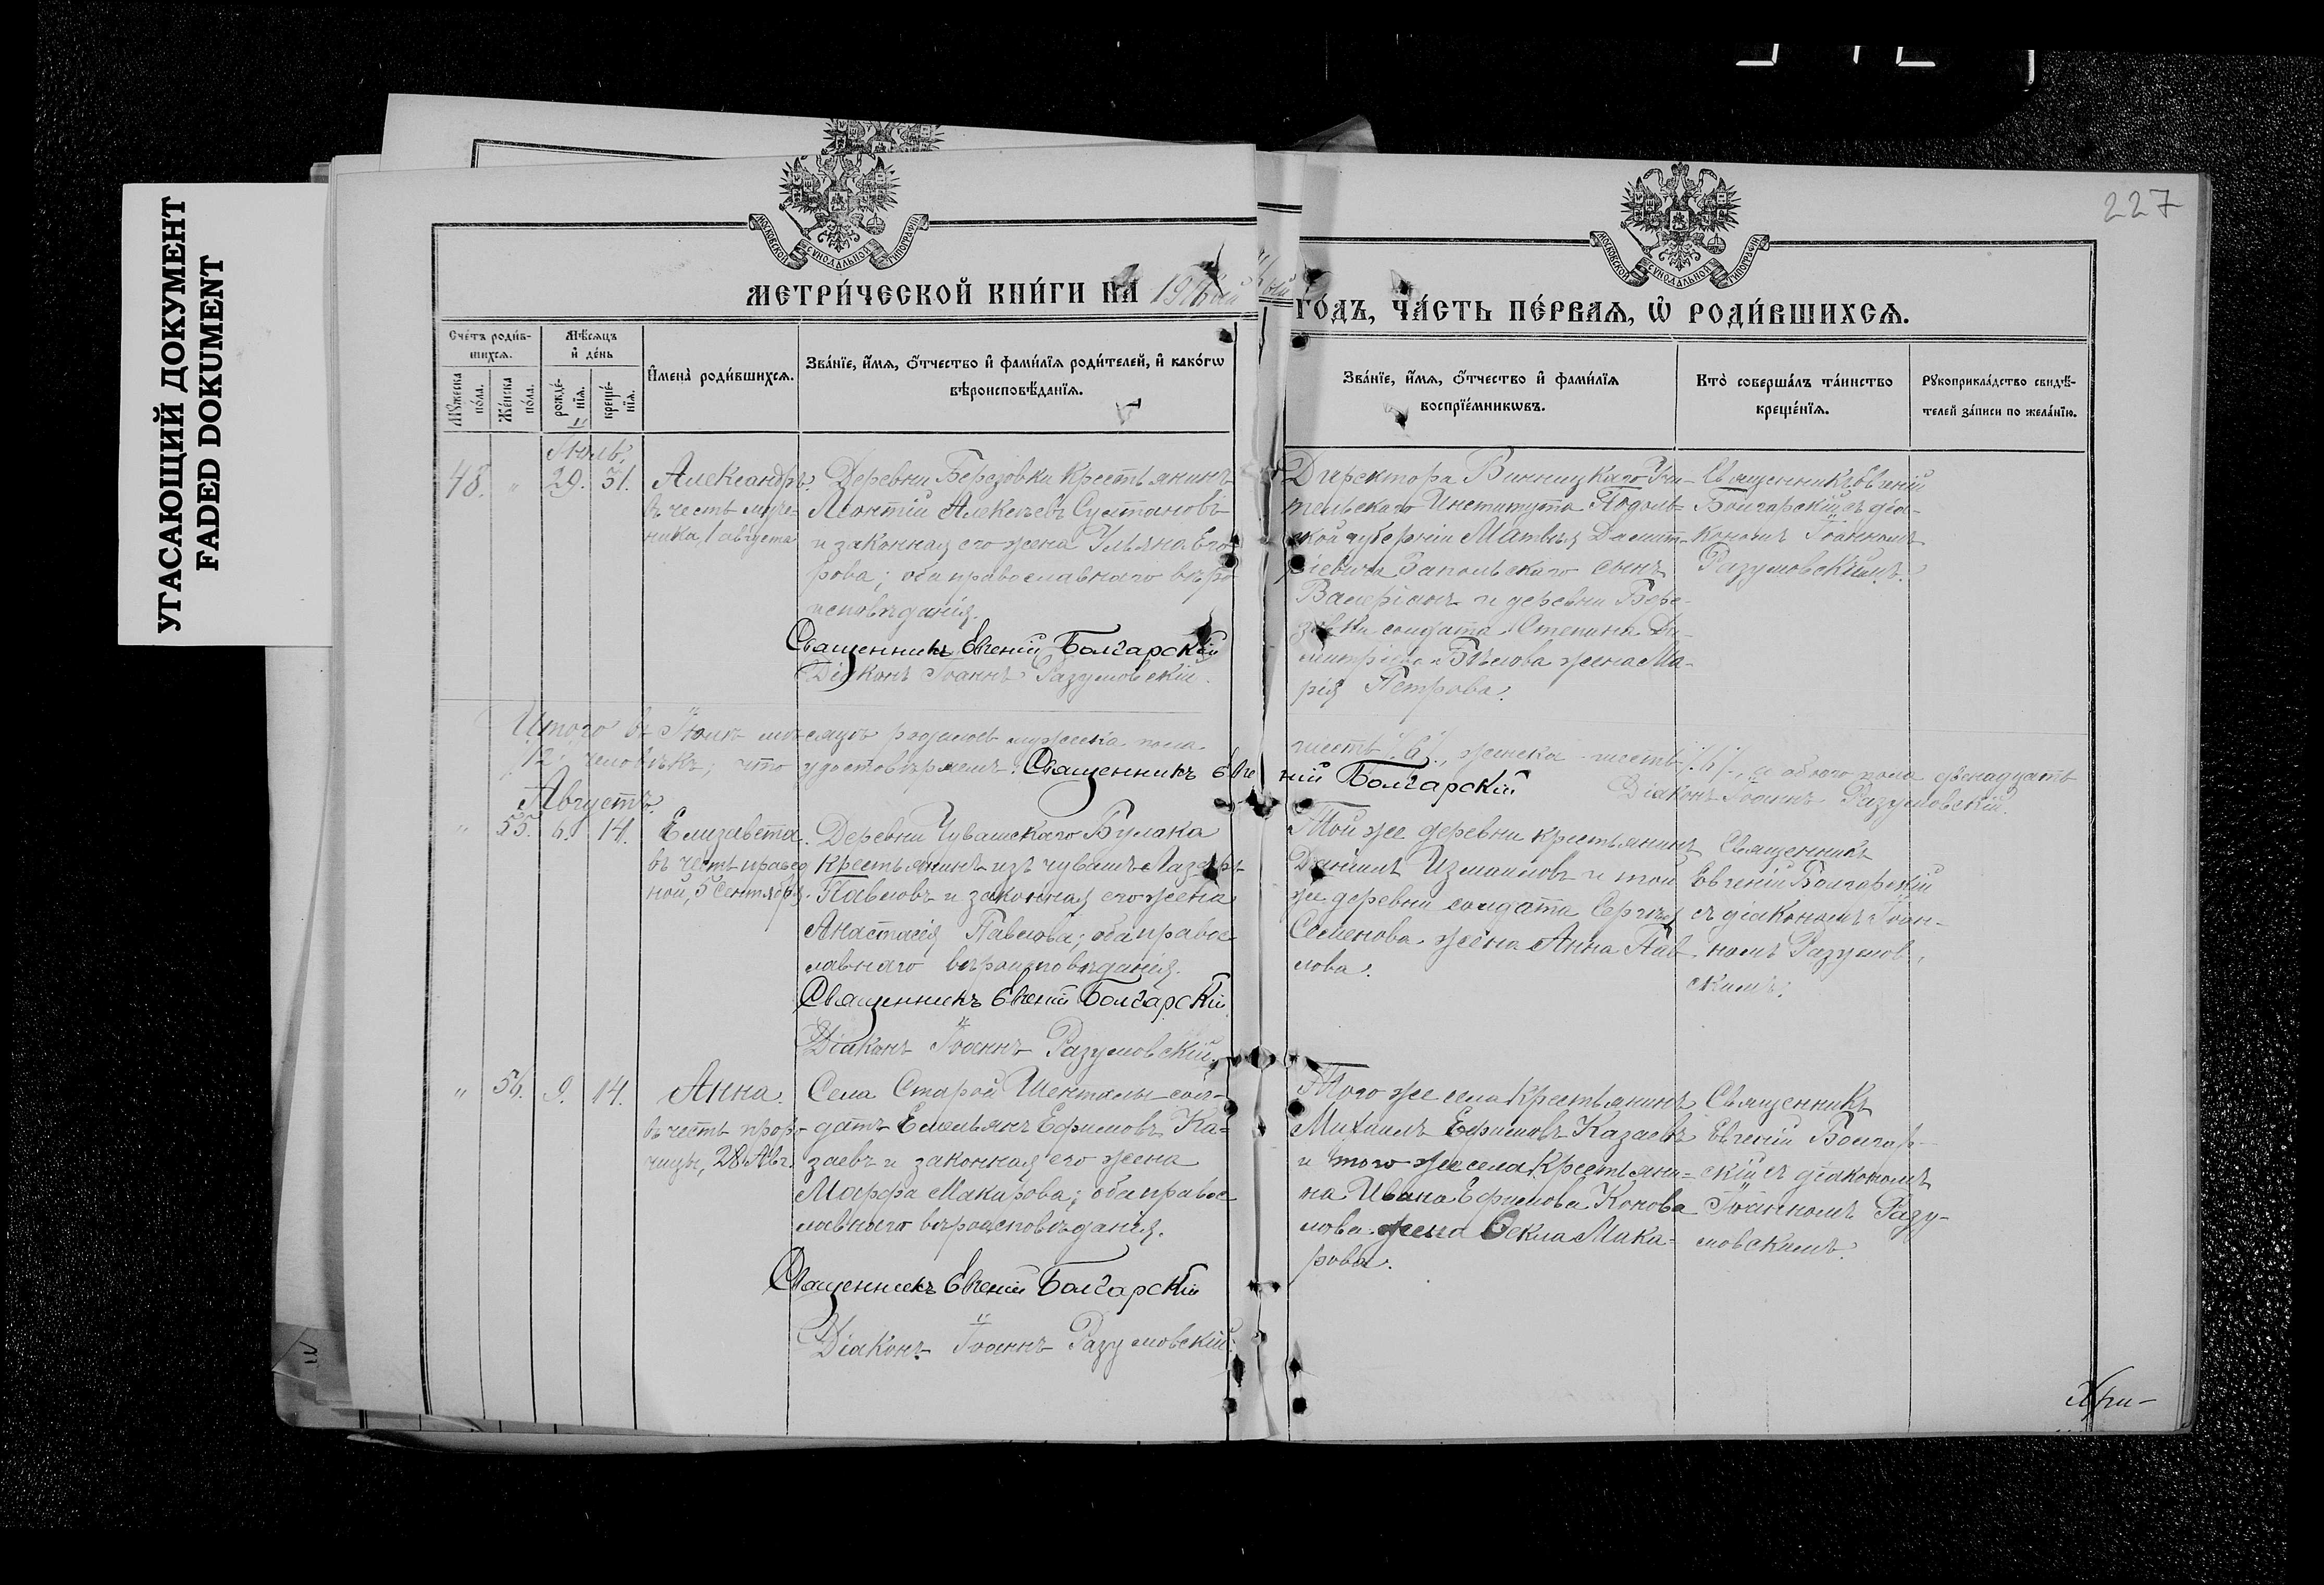 УГАСАЮЩИЙ ДОКУМЕНТ
FADED DOKUMENT
227
МОСКОВСКОЙ СѴНОДАЛЬНОЙ ТИПОГРАФІИ
МОСКОВСКОЙ СѴНОДАЛЬНОЙ ТИПОГРАФІИ
МЕТРИ́ЧЕСКОЙ КНИ́ГИ НА 1916ый
ГО́ДЪ, ЧА́СТЬ ПЕ́РВАѦ, Ѡ҆ РОДИ́ВШИХСѦ.
Сче́тъ роди́в-
шихсѧ.
Мꙋ́жеска по́ла.
Же́нска по́ла.
Мѣ́сѧцъ
и҆ де́нь
рожде́-
нїѧ.
креще́-
нїѧ.
И҆мена̀ роди́вшихсѧ.
Зва́нїе, и҆́мѧ, ѻ҆́тчество и҆ фами́лїѧ роди́телей, и҆ како́гѡ
вѣроисповѣ́данїѧ.
Зва́нїе, и҆́мѧ, ѻ҆́тчество и҆ фами́лїѧ
воспрїе́мникѡвъ.
Кто̀ соверша́лъ та́инство
креще́нїѧ.
Рꙋкоприкла́дство свидѣ́-
телей за́писи по жела́нїю.
Іюль.
48. " 29. 31.
Александръ.
въ честь муче-
ника, 1 августа
Деревни Березовки крестьянинъ
Леонтій Алексѣевъ Султановъ
и законная его жена Ульяна Его-
рова; оба православнаго вѣро
исповѣданія.
Священникъ Евгеній Болгарскій
Діаконъ Іоаннъ Разумовскій.
Директора Винницкаго Учи-
тельскаго Института Подоль-
ской губерніи Матвѣя Димит-
ріевича Запольскаго сынъ
Валеріанъ и деревни Бере-
зовки солдата Степана Ди-
митріева Бѣлова жена Ма-
рія Петрова.
Священникъ Евгеній
Болгарскій съ діа-
кономъ Іоанномъ
Разумовскимъ.
Итого въ Іюлѣ мѣсяцѣ родилось мужеска пола шесть /6/, женска шесть /6/, а обоего пола двенадцать
/12/ человѣкъ; что удостовѣряемъ: Священникъ Евгеній Болгарскій Діаконъ Іоаннъ Разумовскій.
Августъ.
" 55. 6. 14.
Елизавета.
въ честь правед
ной, 5 Сентября.
Деревни Чувашскаго Булака
крестьянинъ изъ чувашъ Лазарь
Павловъ и законная его жена
Анастасія Павлова; оба правос
лавнаго вѣроисповѣданія.
Священникъ Евгеній Болгарскій
Діаконъ Іоаннъ Разумовскій.
Той же деревни крестьянинъ
Даніилъ Измаиловъ и той
же деревни солдата Сергѣя
Семенова жена Анна Пав
лова.
Священникъ
Евгеній Болгарскій
съ діакономъ Іоан-
номъ Разумов
скимъ.
" 56. 9. 14.
Анна.
въ честь проро-
чицы, 28 Авг.
Села Старой Шенталы сол-
датъ Емельянъ Ефимовъ Ка-
заевъ и законная его жена
Марфа Макарова; оба правос
лавнаго вѣроисповѣданія.
Священникъ Евгеній Болгарскій
Діаконъ Іоаннъ Разумовскій.
Того же села крестьянинъ
Михаилъ Ефимовъ Казаевъ
и того же села крестьяни-
на Ивана Ефимова Конова
лова жена Ѳекла Мака-
рова.
Священникъ
Евгеній Болгар-
скій съ діакономъ
Іоанномъ Разу-
мовскимъ.
Хри-